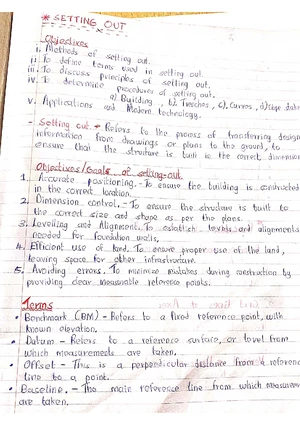 * SETTING OUT
Objectives
i. Methods of setting out.
ii. To define terms used in setting out.
iii. To discuss principles of setting out.
iv. To determine procedures of setting out.
a) Building, b) Trenches, c) Curves, d)
v. Applications and Modern technology.
- Setting out. - Refers to the process of transferring design
information from drawings or plans to the ground, to
ensure that the structure is built in the correct dimension
Objectives/Goals of setting-out.
1. Accurate positioning. - To ensure the building is constructed
in the correct location.
2. Dimension control. - To ensure the structure is built to
the correct size and shape as per the plans.
3. Levelling and Alignment. To establish levels and alignments
needed for foundation walls.
4. Efficient use of land. To ensure proper use of the land,
leaving space for other infrastructure.
5. Avoiding errors. To minimize mistakes during construction by
providing clear measurable reference points.
Terms
• Benchmark (BM) - Refers to a fixed reference point, with
known elevation.
• Datum - Refers to a reference surface, or level from
which measurements are taken.
• Offset - This is a perpendicular distance from a reference
line to a point.
• Baseline. - The main reference line from which measurem
are taken.